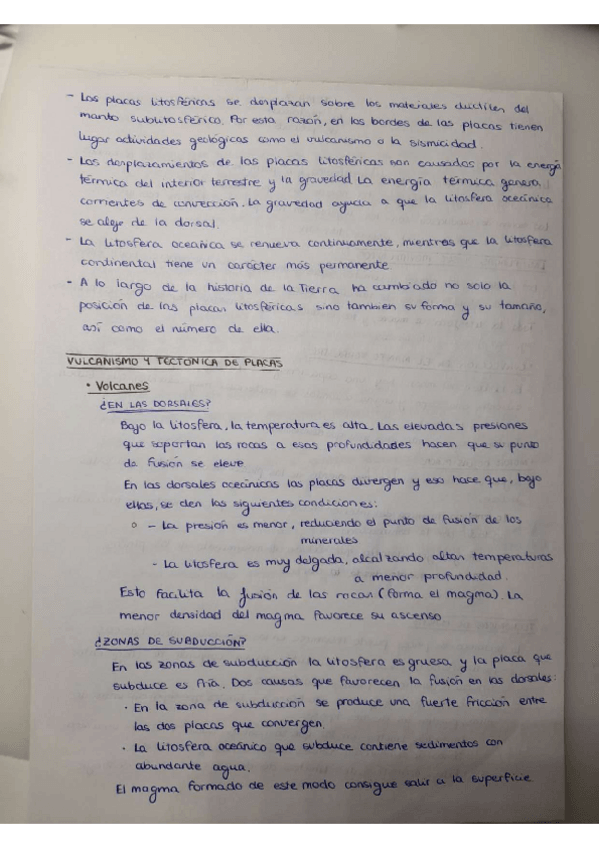 - Las placas litosféricas se desplazan sobre los materiales dúctiles del
manto sublitosférico. Por esta razón, en los bordes de las placas tienen
lugar actividades geológicas como el vulcanismo o la sismicidad.
- Los desplazamientos de las placas litosféricas son causados por la energía
térmica del interior terrestre y la gravedad. La energía térmica genera
corrientes de convección. La gravedad ayuda a que la litosfera oceánica
se aleje de la dorsal.
- La litosfera oceánica se renueva continuamente, mientras que la litosfera
continental tiene un carácter más permanente
- A lo largo de la historia de la Tierra ha cambiado no solo la
posición de las placas litosféricas sino tambien su forma y su tamaño,
así como el número de ella.
VULCANISMO Y TECTÓNICA DE PLACAS
• Volcanes
¿EN LAS DORSALES?
Bajo la litosfera, la temperatura es alta. Las elevadas presiones
que soportan las rocas a esas profundidades hacen que su punto
de fusión se eleve
En las dorsales oceánicas las placas divergen y eso hace que, bajo
ellas, se den las siguientes condiciones:
○ - La presión es menor, reduciendo el punto de fusión de los
minerales
- La litosfera es muy delgada, alcalzando altas temperaturas
a menor profundidad.
Esto facilita la fusión de las rocas (forma el magma). La
menor densidad del magma favorece su ascenso
¿ZONAS DE SUBDUCCIÓN?
En las zonas de subducción la litosfera es gruesa y la placa que
subduce es fría. Dos causas que favorecen la fusión en las dorsales:
· En la zona de subducción se produce una fuerte fricción entre
las dos placas que convergen.
· La litosfera oceánico que subduce contiene sedimentos con
abundante agua.
El magma formado de este modo consigue salir a la superficie